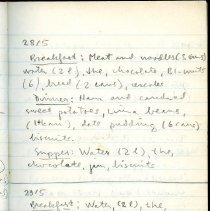 28/5
Breakfast: Meat and noodles (3 cans)
water (2 l), the, chocolate, B1-units
(6), bread (2 cans),
Dinner: Ham and candied
sweet potatoes, Lima beans,
date pudding (6 cans)
biscuits
Supper: Water (2 l), the,
chocolate, jam, biscuits
29/5
Breakfast: Water, (2 l), the,